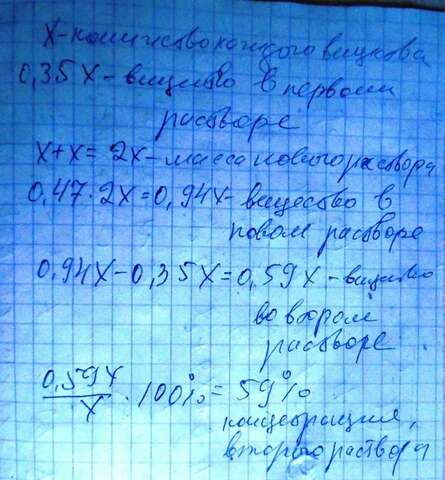 x - количество каждого вещества
0,35x - вещество в первом
растворе
x + x = 2x - масса нового раствора
0,47 · 2x = 0,94x - вещество в
новом растворе
0,94x - 0,35x = 0,59x - вещество
во втором
растворе
0,59x/x · 100% = 59%
концентрация
второго раствора